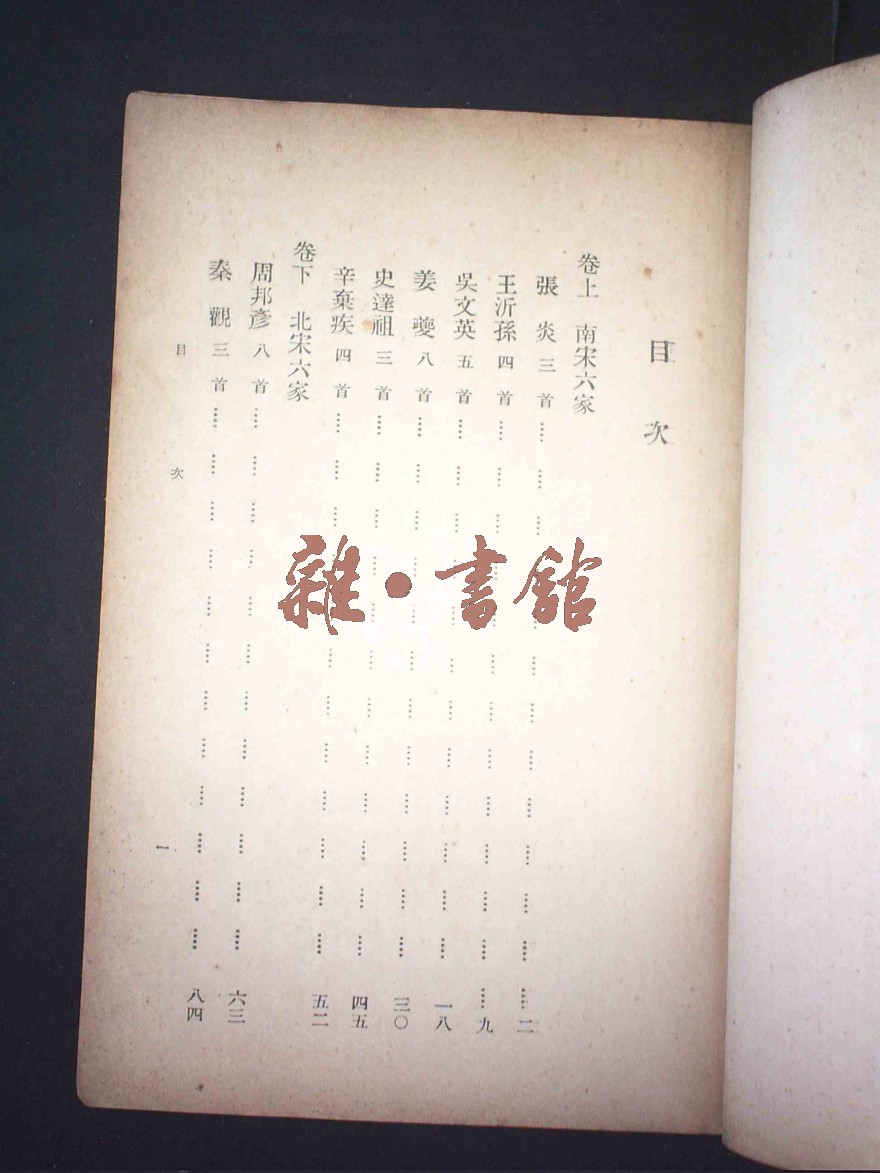 目次
卷上 南宋六家
張炎三首…………二
王沂孫四首…………九
吳文英五首…………一八
姜夔八首…………三〇
史達祖三首…………四五
辛棄疾四首…………五二
卷下 北宋六家
周邦彥八首…………六三
秦觀三首…………八四
目次 一
雜·書館